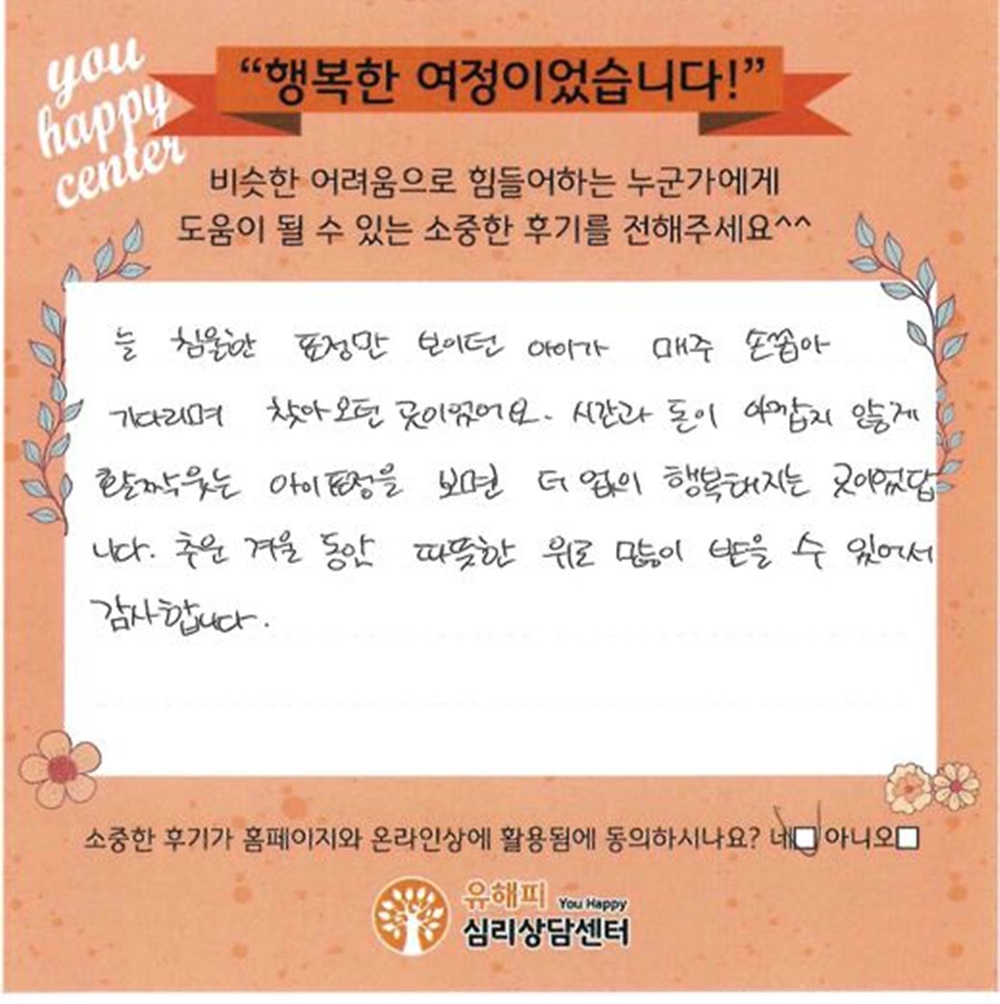 you
happy
center
“행복한 여정이었습니다!”
비슷한 어려움으로 힘들어하는 누군가에게
도움이 될 수 있는 소중한 후기를 전해주세요^^
늘 침울한 표정만 보이던 아이가 매주 손꼽아
기다리며 찾아오던 곳이었어요. 시간과 돈이 아깝지 않게
활짝 웃는 아이 표정을 보면 더 없이 행복해지는 곳이었답
니다. 추운 겨울 동안 따뜻한 위로 많이 받을 수 있어서
감사합니다.
소중한 후기가 홈페이지와 온라인상에 활용됨에 동의하시나요? 네□ 아니오□
유해피 You Happy
심리상담센터